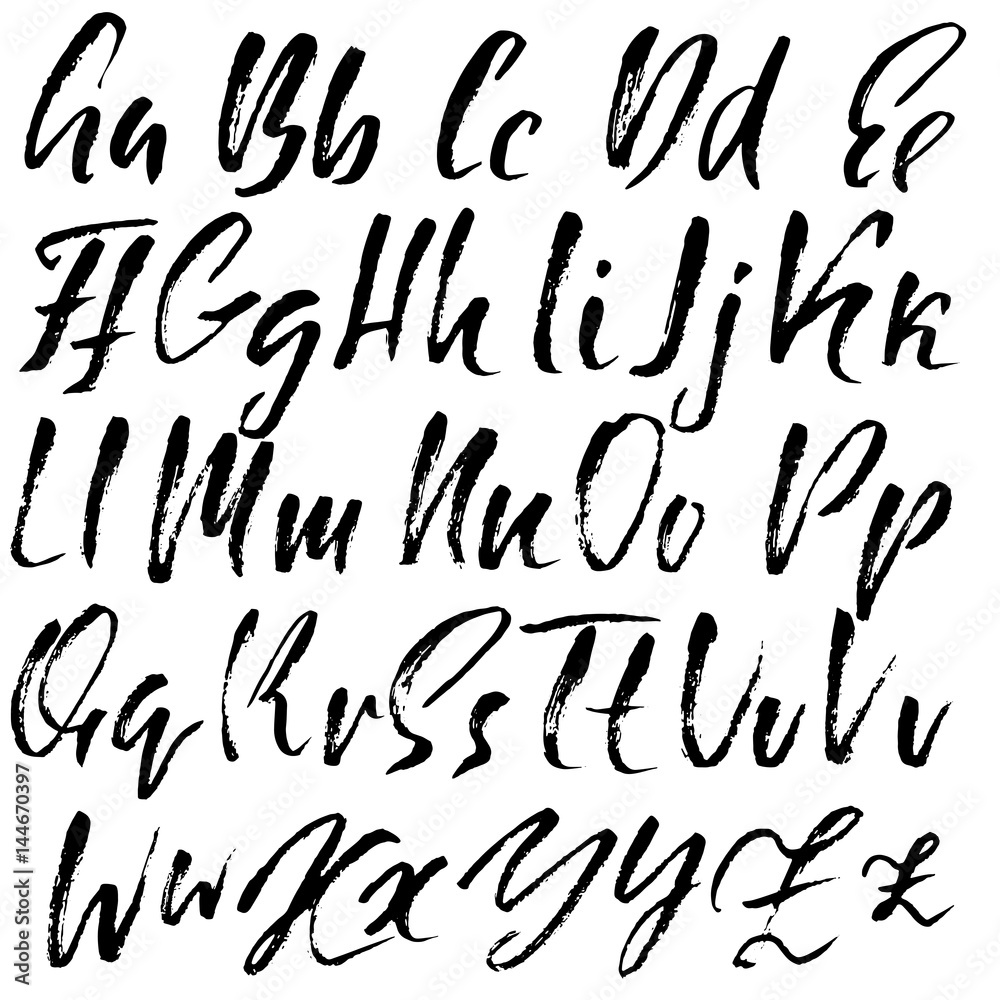 Aa Bb Cc Dd Ee
Ff Gg Hh Ii Jj Kk
Ll Mm Nn Oo Pp
Qq Rr Ss Tt Uu Vv
Ww Xx Yy Zz
Adobe Stock | #144670397